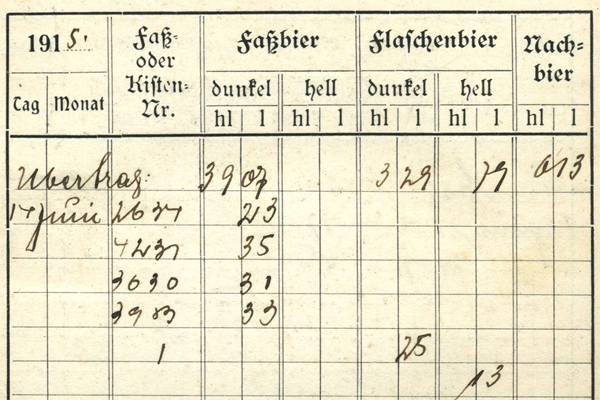 1915.
Faß- oder Kisten-Nr.
Faßbier
Flaschenbier
Nach-bier
Tag Monat
dunkel hell dunkel hell
hl l hl l hl l hl l hl l
Übertrag: 39 07 3 29 79 0 13
14 Juni 2634 23
4231 35
3630 31
3983 33
1 25
13